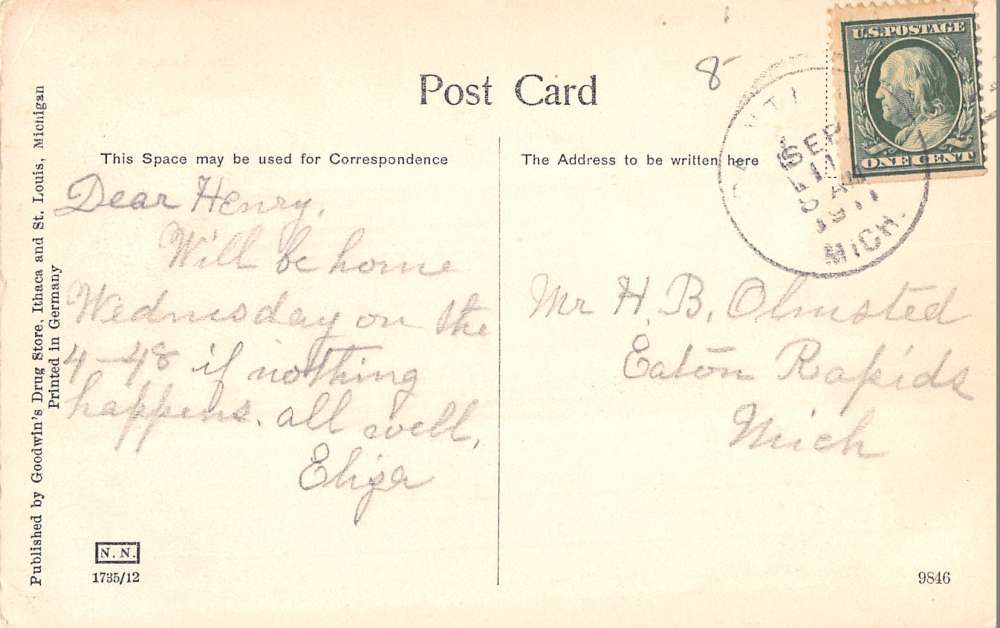 8
Post Card
U.S. POSTAGE
ONE CENT
SEP
11
5 AM
1911
MICH.
This Space may be used for Correspondence
The Address to be written here
Dear Henry.
Will be home
Wednesday on the
4-48 if nothing
happens. all well.
Eliza
Mr H. B. Olmsted
Eaton Rapids
Mich
Published by Goodwin's Drug Store, Ithaca and St. Louis, Michigan
Printed in Germany
N. N.
1735/12
9846